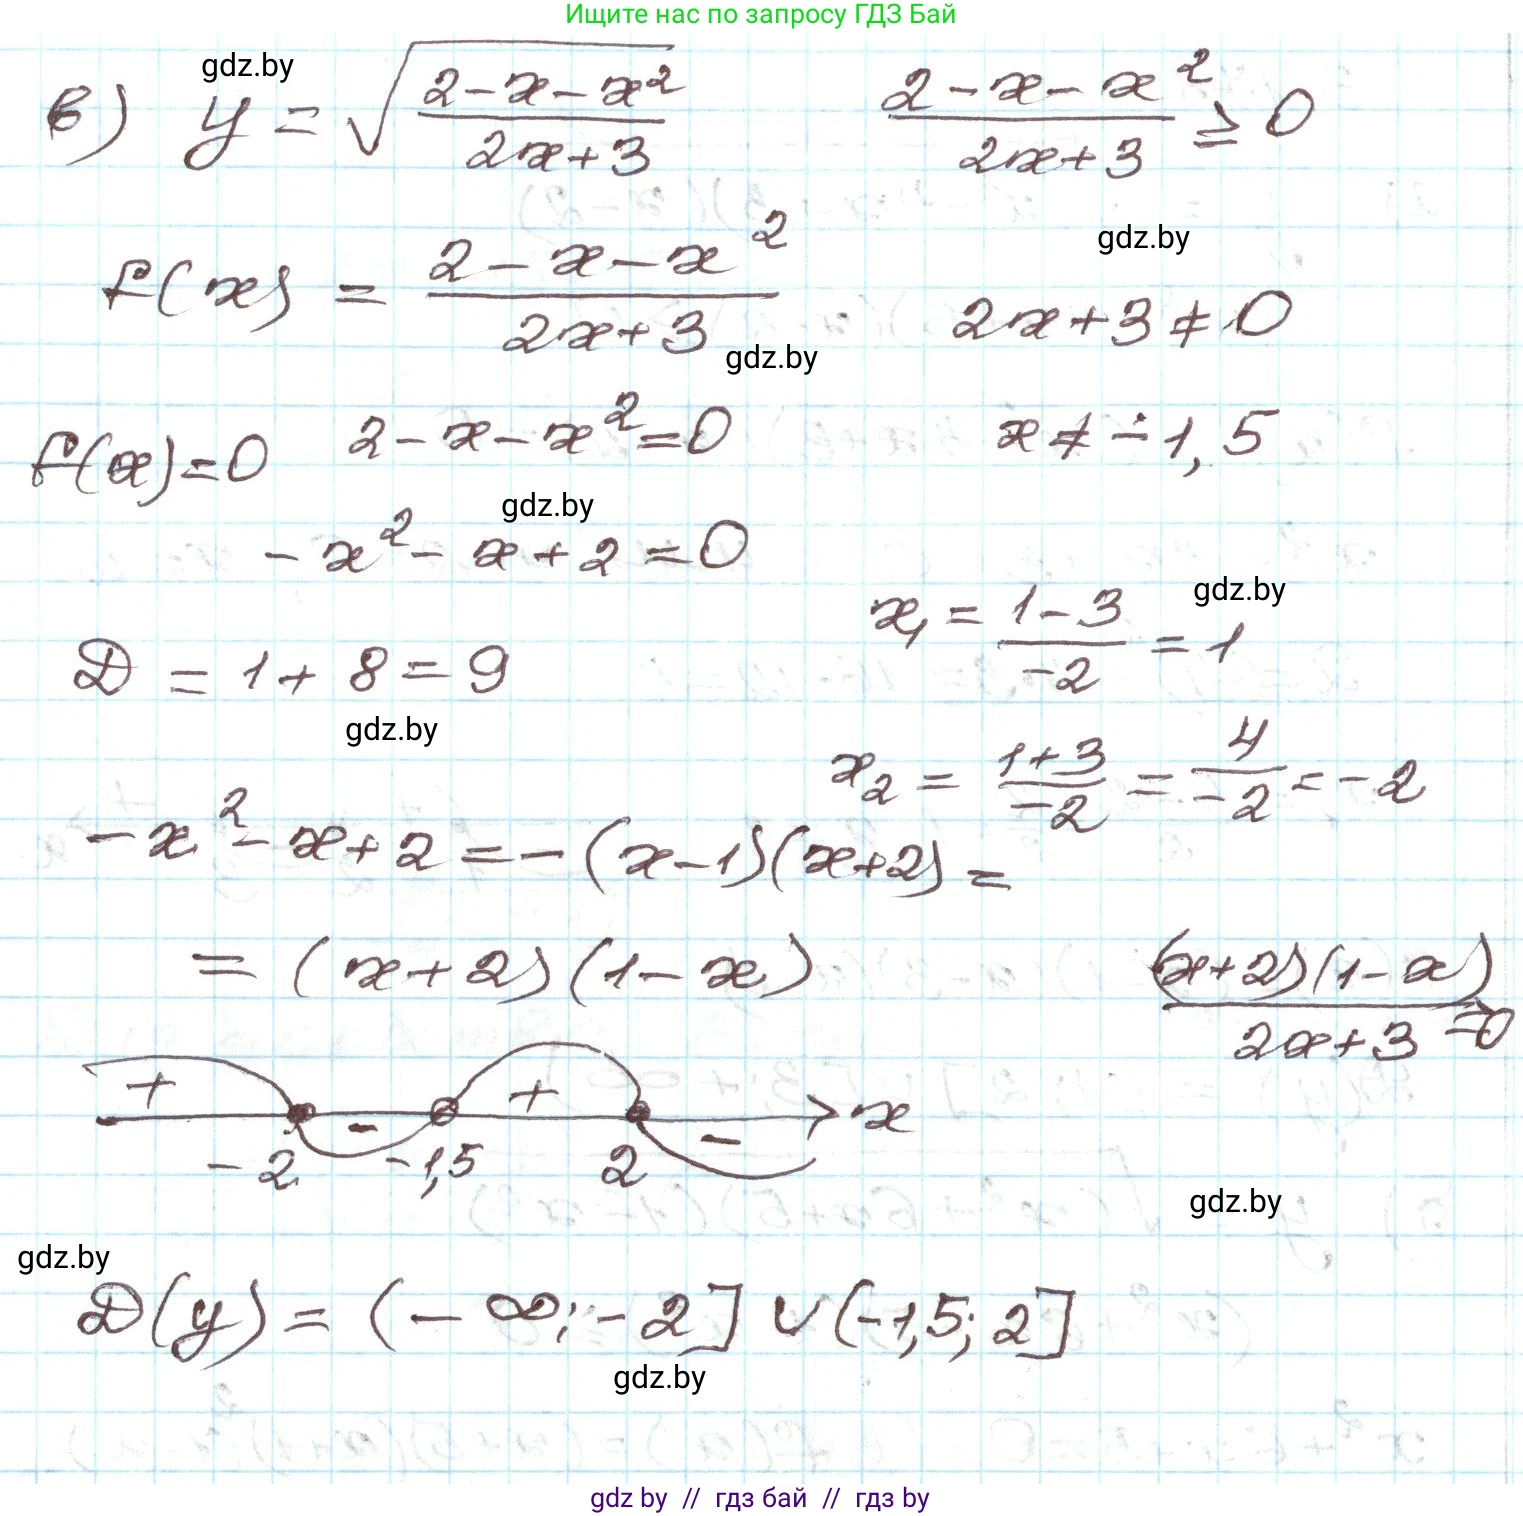 Ищите нас по запросу ГДЗ Бай
gdz.by
в) y = √((2-x-x²)/(2x+3))   (2-x-x²)/(2x+3) ≥ 0
gdz.by
f(x) = (2-x-x²)/(2x+3)   2x+3≠0
gdz.by
f(x)=0   2-x-x²=0   x≠-1,5
gdz.by
-x²-x+2=0
gdz.by
x₁ = (1-3)/(-2) = 1
D = 1+8=9
gdz.by
x₂ = (1+3)/(-2) = 4/(-2) = -2
-x²-x+2=-(x-1)(x+2)=
=(x+2)(1-x)   ((x+2)(1-x))/(2x+3) ≥0
+ - + - x
-2 -1,5 2
gdz.by
gdz.by
D(y)=(-∞;-2]∪(-1,5;2]
gdz.by
gdz by // гдз бай // гдз by